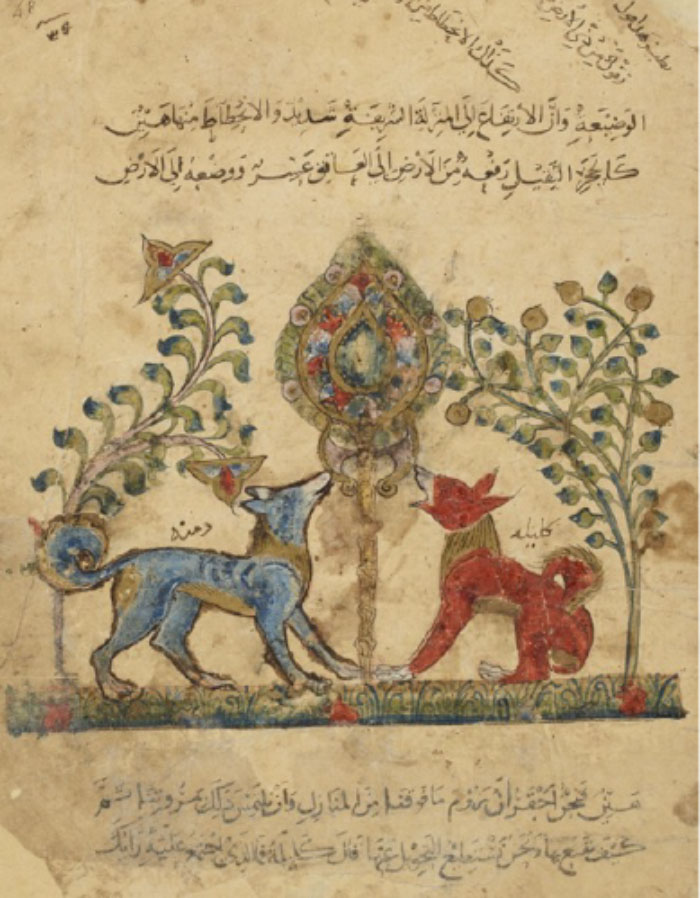 الوضيعة وان الارتفاع الى المنزلة الشريفة شديد والانحطاط منها هين
كالحجر الثقيل رفعه من الارض الى العاتق عسر ووضعه الى الارض
دمنه
كليله
هين فنحن احق ان نروم ما فوقنا من المنازل وان نلتمس ذلك بمروتنا ثم
كيف نقنع بها ونحن نستطيع التحويل عنها قال كليلة فالذي اجتمع عليه رايك